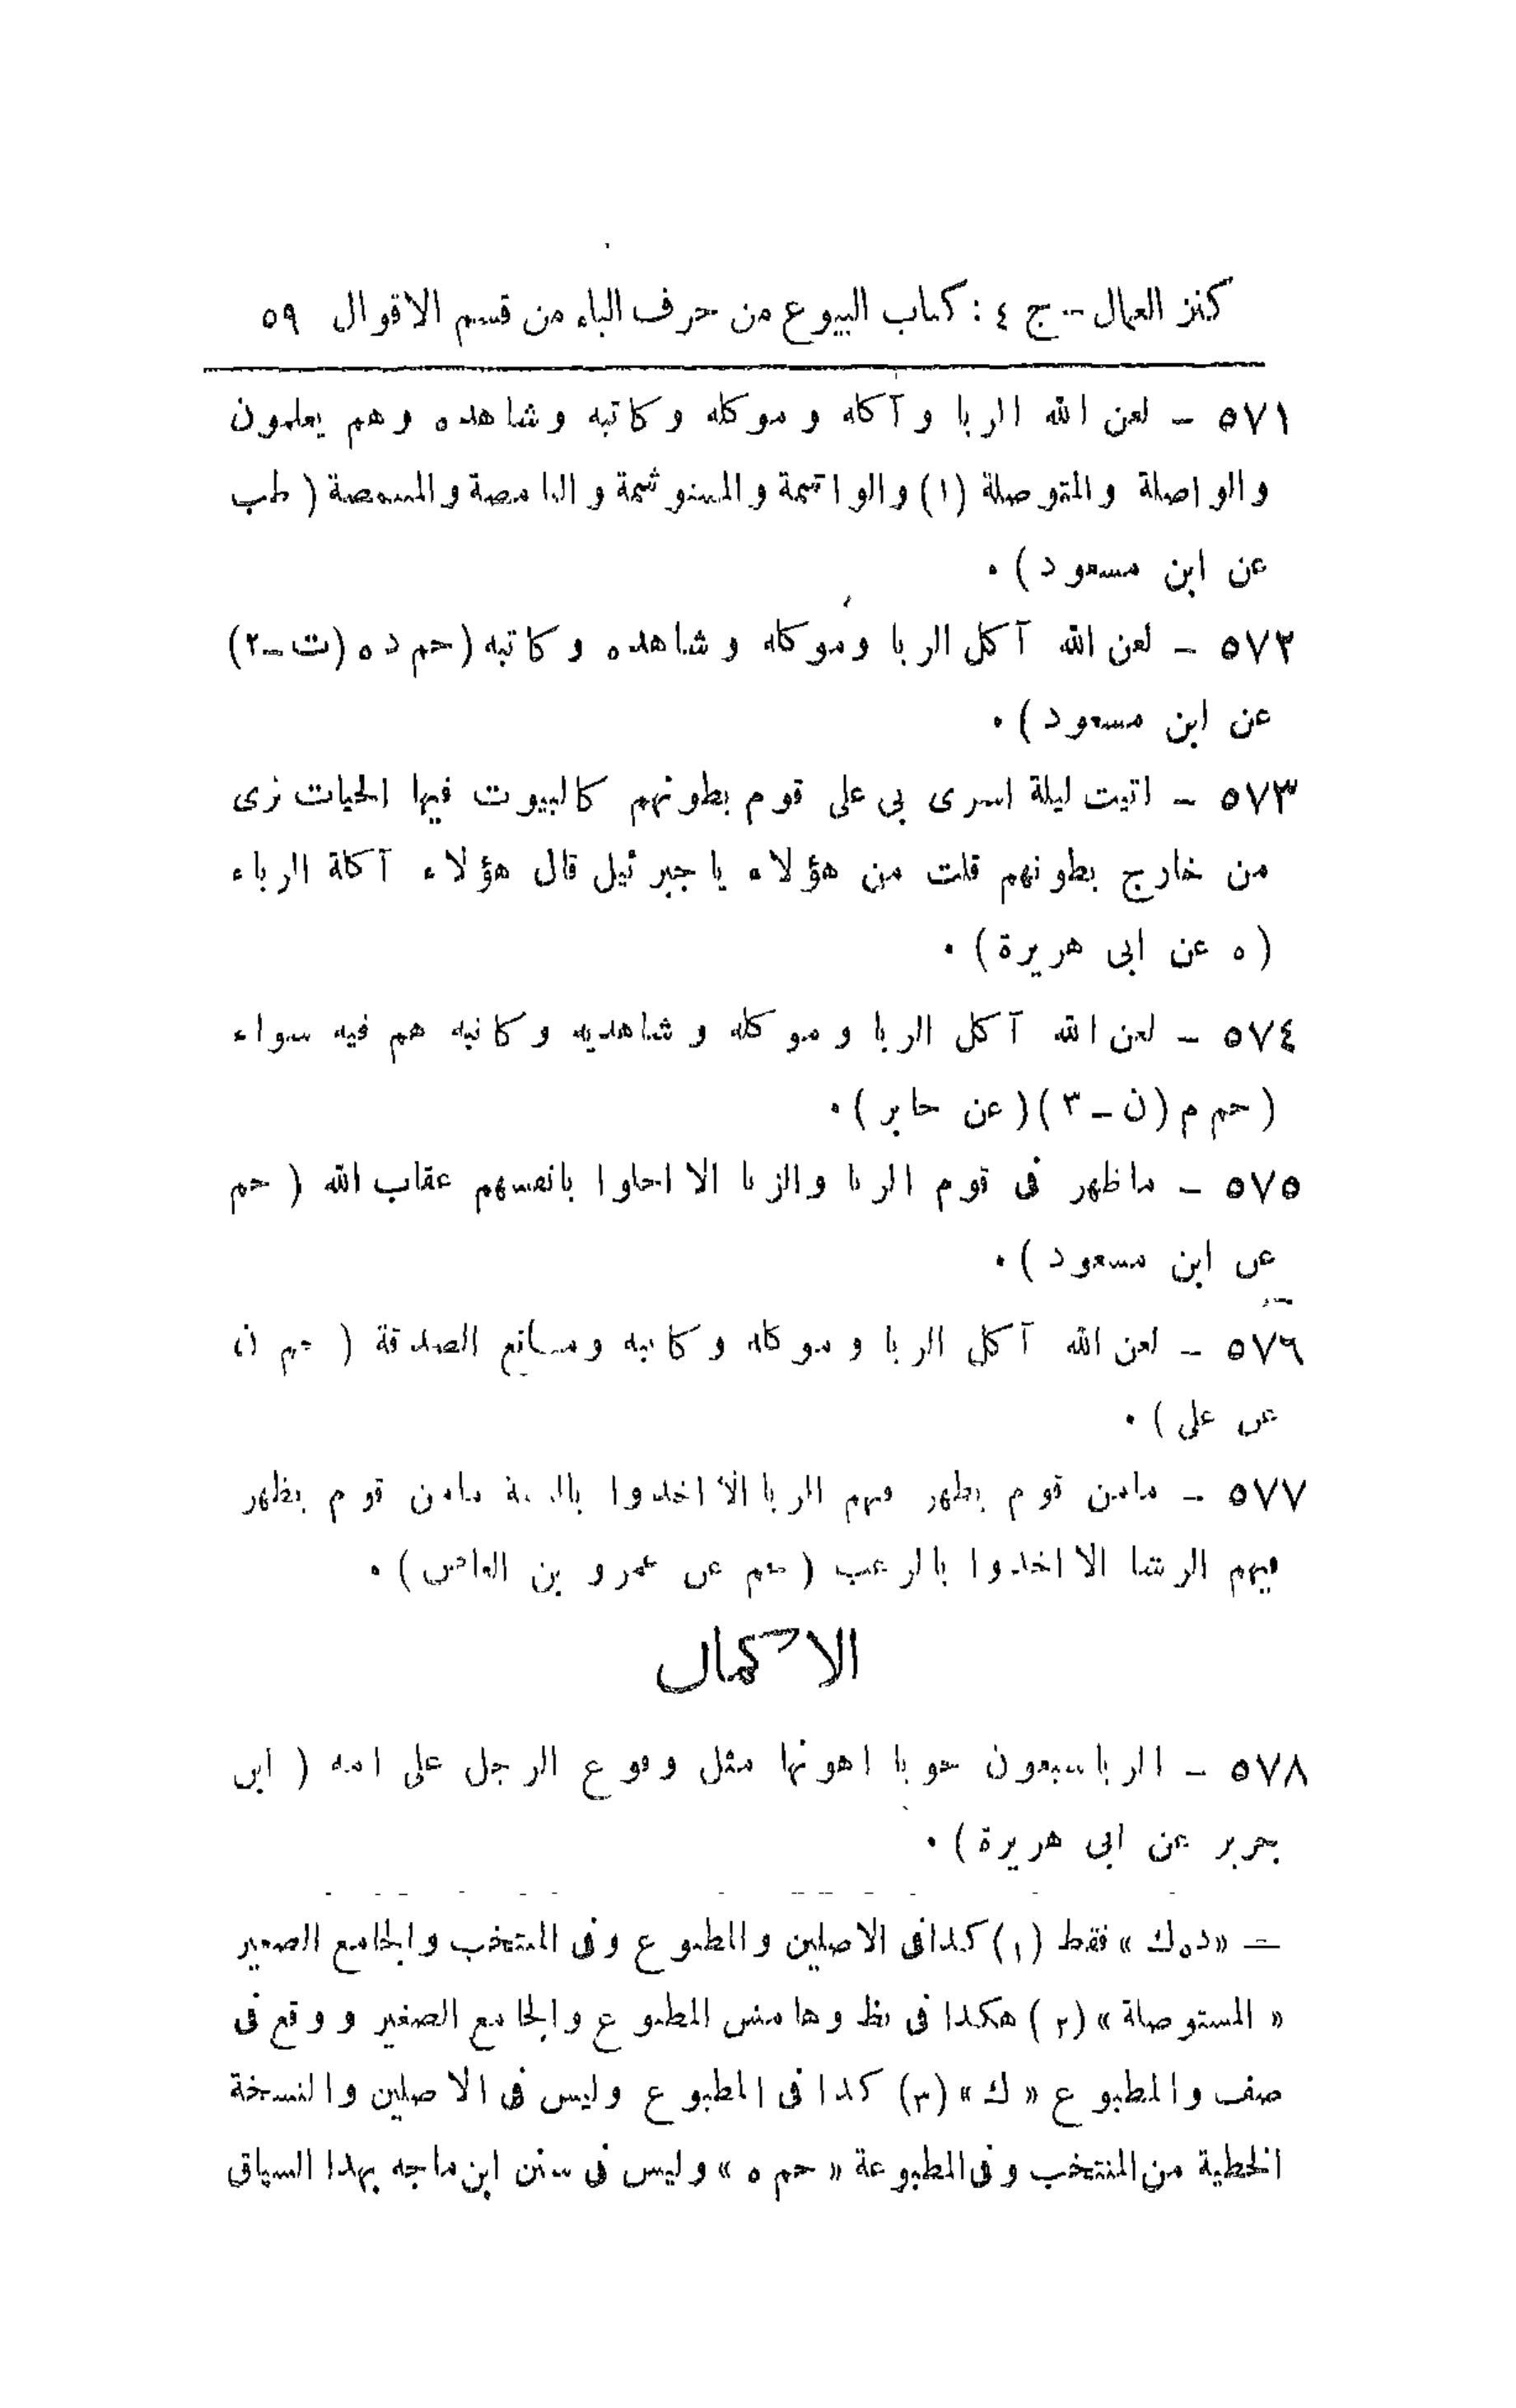 كنز العمال -- ج ٤ : كتاب البيوع من حرف الباء من قسم الاقوال ٥٩
٥٧١ - لعن الله الربا وآكله وموكله وكاتبه وشاهده وهم يعلمون
والواصلة والمتوصلة (١) والواشمة والمستوشمة والنامصة والمتنمصة ( طب
عن ابن مسعود ) ٠
٥٧٢ - لعن الله آكل الربا وموكله وشاهده وكاتبه (حم د ه (ت - ٢)
عن ابن مسعود ) ٠
٥٧٣ - اتيت ليلة اسرى بى على قوم بطونهم كالبيوت فيها الحيات ترى
من خارج بطونهم قلت من هؤلاء يا جبرئيل قال هؤلاء آكلة الرباء
( ه عن ابى هريرة ) ٠
٥٧٤ - لعن الله آكل الربا وموكله وشاهديه وكاتبه هم فيه سواء
( حم م (ن - ٣ ) ( عن جابر ) ٠
٥٧٥ - ما ظهر فى قوم الربا والزنا الا احلوا بانفسهم عقاب الله ( حم
عن ابن مسعود ) ٠
٥٧٦ - لعن الله آكل الربا وموكله وكاتبه ومانع الصدقة ( حم ن
عن على ) ٠
٥٧٧ - مامن قوم يظهر فيهم الربا الا اخذوا بالسنة مامن قوم يظهر
فيهم الرشا الا اخذوا بالرعب ( حم عن عمرو بن العاص ) ٠
الاكمال
٥٧٨ - الربا سبعون حوبا اهونها مثل وقوع الرجل على امه ( ابن
جرير عن ابى هريرة ) ٠
= «د ه ك » فقط (١) كذا فى الاصلين والمطبوع وفى المنتخب والجامع الصغير
« المستوصلة » (٢) هكذا فى نظ وهامش المطبوع والجامع الصغير ووقع فى
صف والمطبوع « ك » (٣) كذا فى المطبوع وليس فى الاصلين والنسخة
الخطية من المنتخب وفى المطبوعة « حم ه » وليس فى سنن ابن ماجه بهذا السياق